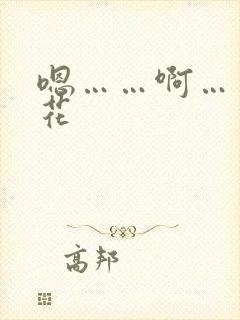 嗯……啊…
花
高邦